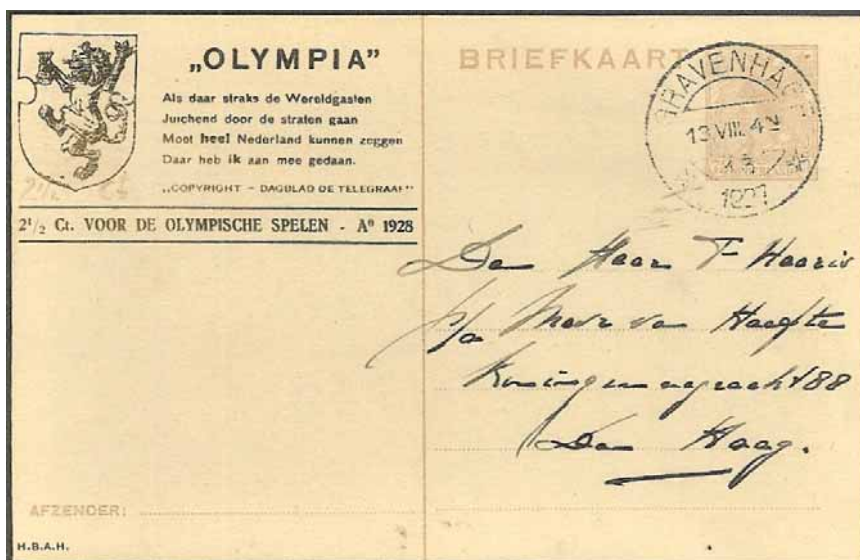 „OLYMPIA”
Als daar straks de Wereldgasten
Juichend door de straten gaan
Moet heel Nederland kunnen zeggen
Daar heb ik aan mee gedaan.
„COPYRIGHT - DAGBLAD DE TELEGRAAF”
2½ Ct. VOOR DE OLYMPISCHE SPELEN - Aº 1928
BRIEFKAART
GRAVENHAGE
13 VIII. 4-
1927
Den Heer F
p/a Mevr van Haeften
Koninginnegracht 88
Den Haag.
AFZENDER:
H.B.A.H.